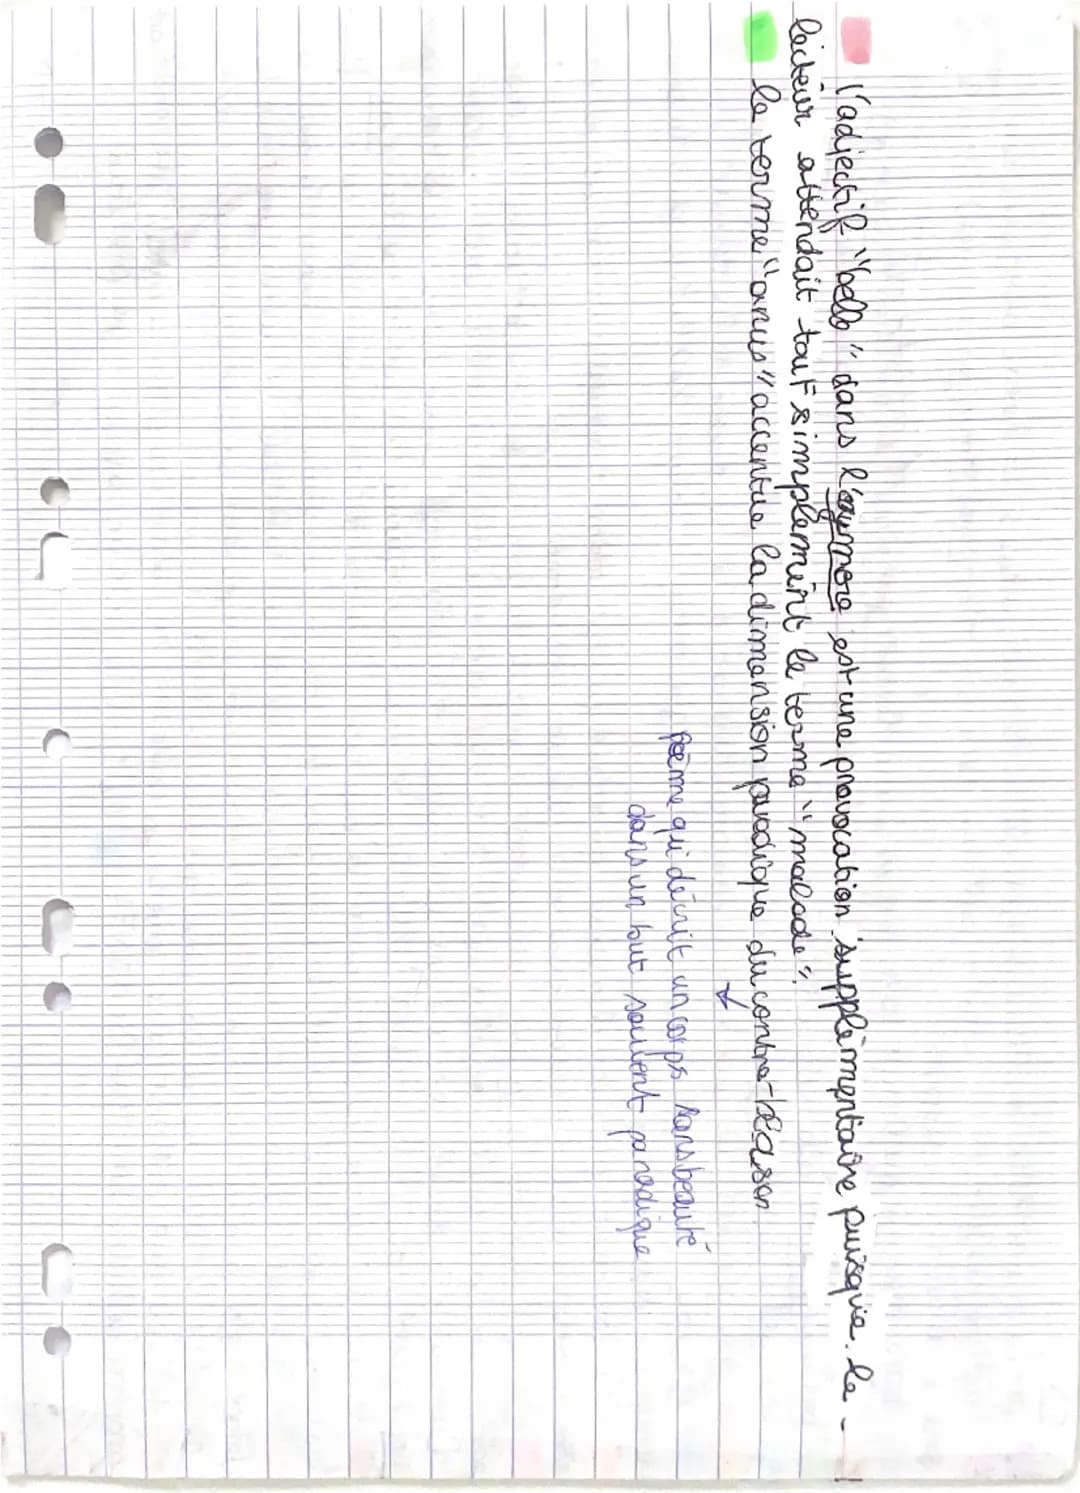 l'adjectif "belle" dans l'oxymore est une provocation supplémentaire puisque le
lecteur attendait tout simplement le terme "malade".
le terme "anus" accentue la dimension parodique du contre-blason
poème qui décrit un corps sans beauté
dans un but souvent parodique